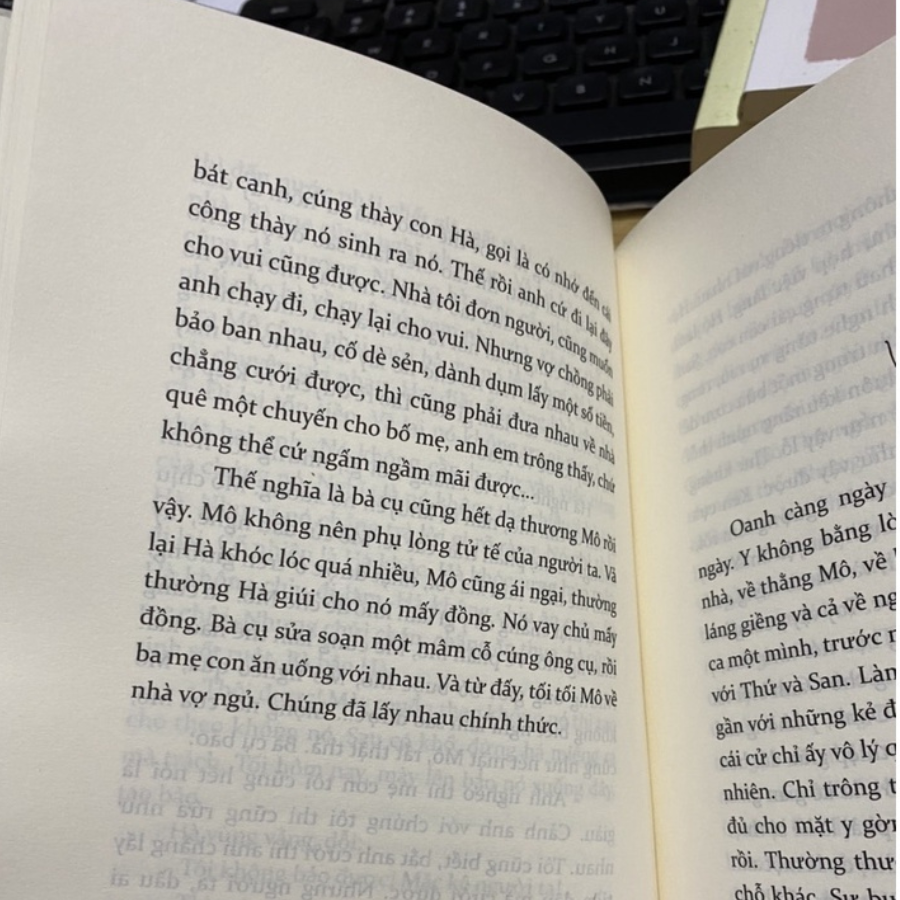 bát canh, cúng thày con Hà, gọi là có nhớ đến cái
công thày nó sinh ra nó. Thế rồi anh cứ đi lại đây
cho vui cũng được. Nhà tôi đơn người, cũng muốn
anh chạy đi, chạy lại cho vui. Nhưng vợ chồng phải
bảo ban nhau, cố dè sẻn, dành dụm lấy một số tiền,
chẳng cưới được, thì cũng phải đưa nhau về nhà
quê một chuyến cho bố mẹ, anh em trông thấy, chứ
không thể cứ ngấm ngầm mãi được...
Thế nghĩa là bà cụ cũng hết dạ thương Mô rồi
vậy. Mô không nên phụ lòng tử tế của người ta. Vả
lại Hà khóc lóc quá nhiều, Mô cũng ái ngại, thường
thường Hà giúi cho nó mấy đồng. Nó vay chủ mấy
đồng. Bà cụ sửa soạn một mâm cỗ cúng ông cụ, rồi
ba mẹ con ăn uống với nhau. Và từ đấy, tối tối Mô về
nhà vợ ngủ. Chúng đã lấy nhau chính thức.
Oanh càng ngày
ngày. Y không bằng
nhà, về thằng Mô, về
láng giềng và cả về
ca một mình, trước
với Thứ và San.
gần với những kẻ
cái cử chỉ ấy vô lý
nhiên. Chỉ trông
đủ cho mặt y
rồi. Thường
chỗ khác. Sự